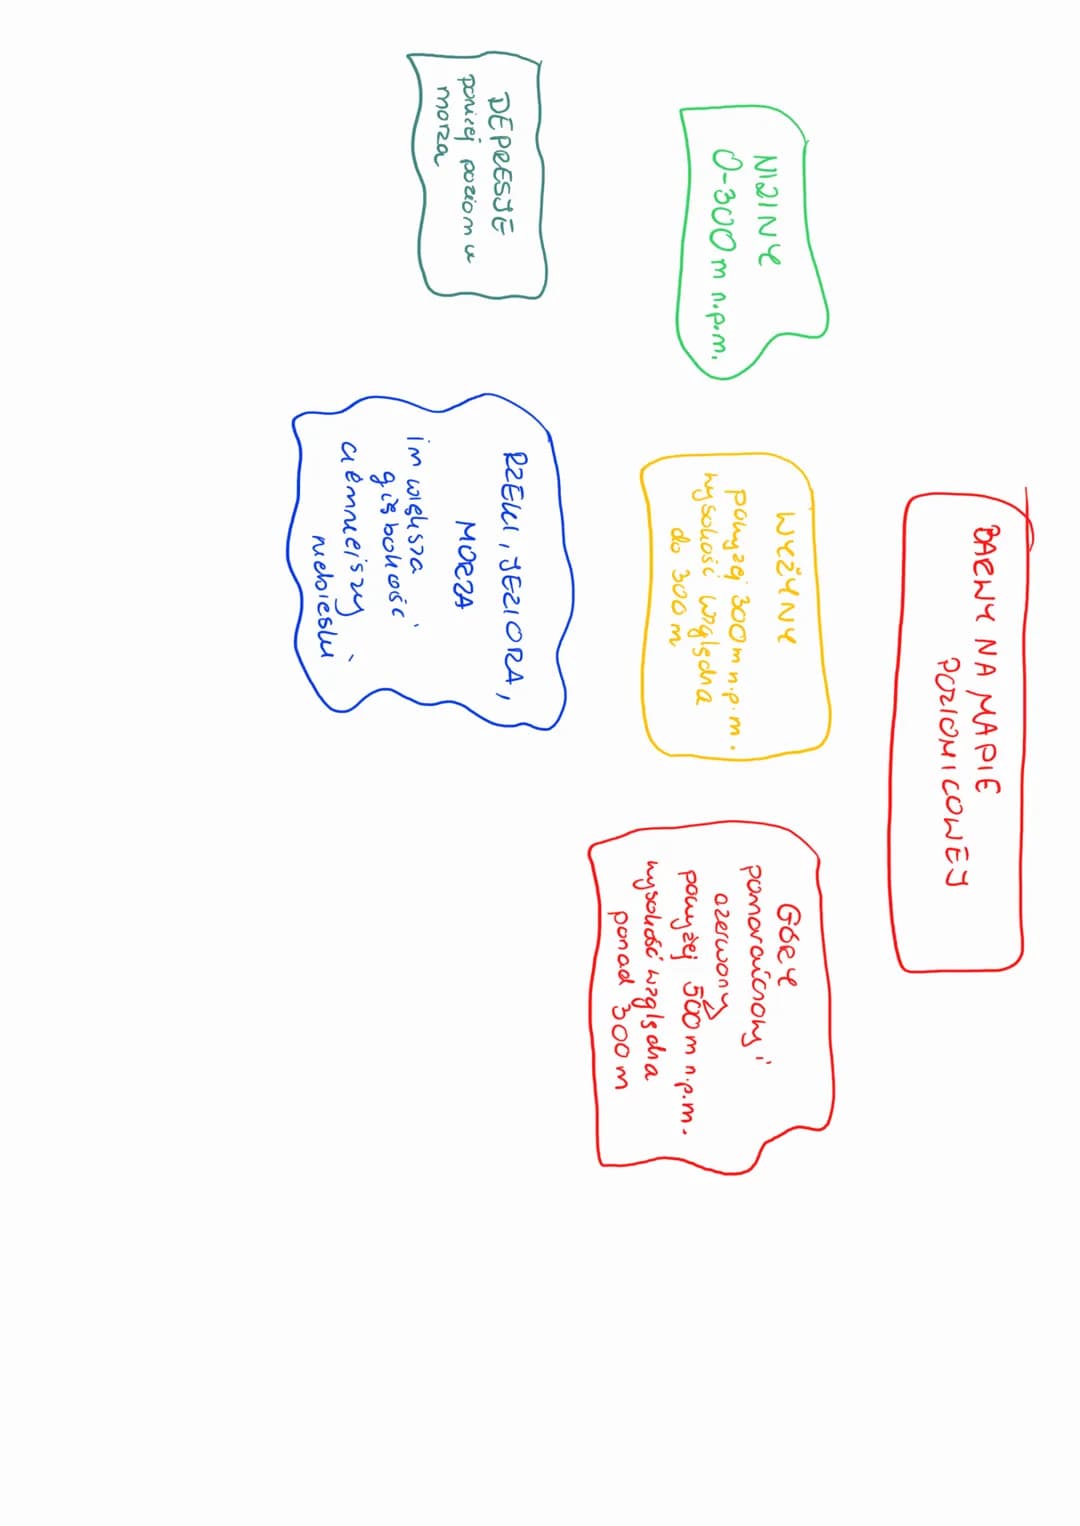 BARWY NA MAPIE
POZIOMICOWEJ
NIZINY
0-300m n.p.m.
WYŻYNY
powyżej 300m n.p.m.
wysokość względna
do 300m
GÓRY
pomarańczowy i
czerwony
powyżej 500m n.p.m.
wysokość względna
ponad 300m
DEPRESJE
poniżej poziomu
morza
RZEKI, JEZIORA,
MORZA
im większa
głębokość
ciemniejszy
niebieski